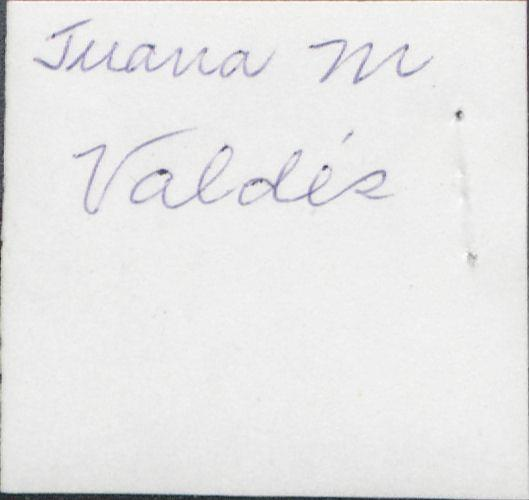 Juana M
Valdés